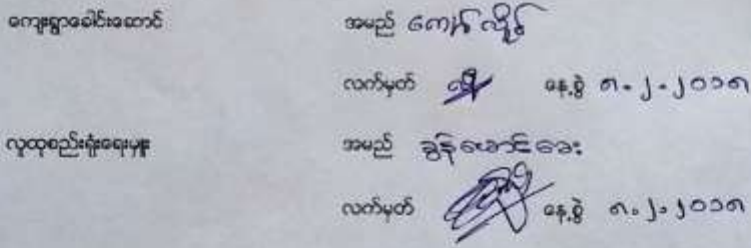 ကျေးရွာခေါင်းဆောင် အမည် ကျော်လှိုင်
လက်မှတ် နေ့စွဲ ၈.၂.၂၀၁၈
လူထုစည်းရုံးရေးမှူး အမည် ခွန်အောင်ဒေး
လက်မှတ် နေ့စွဲ ၈.၂.၂၀၁၈